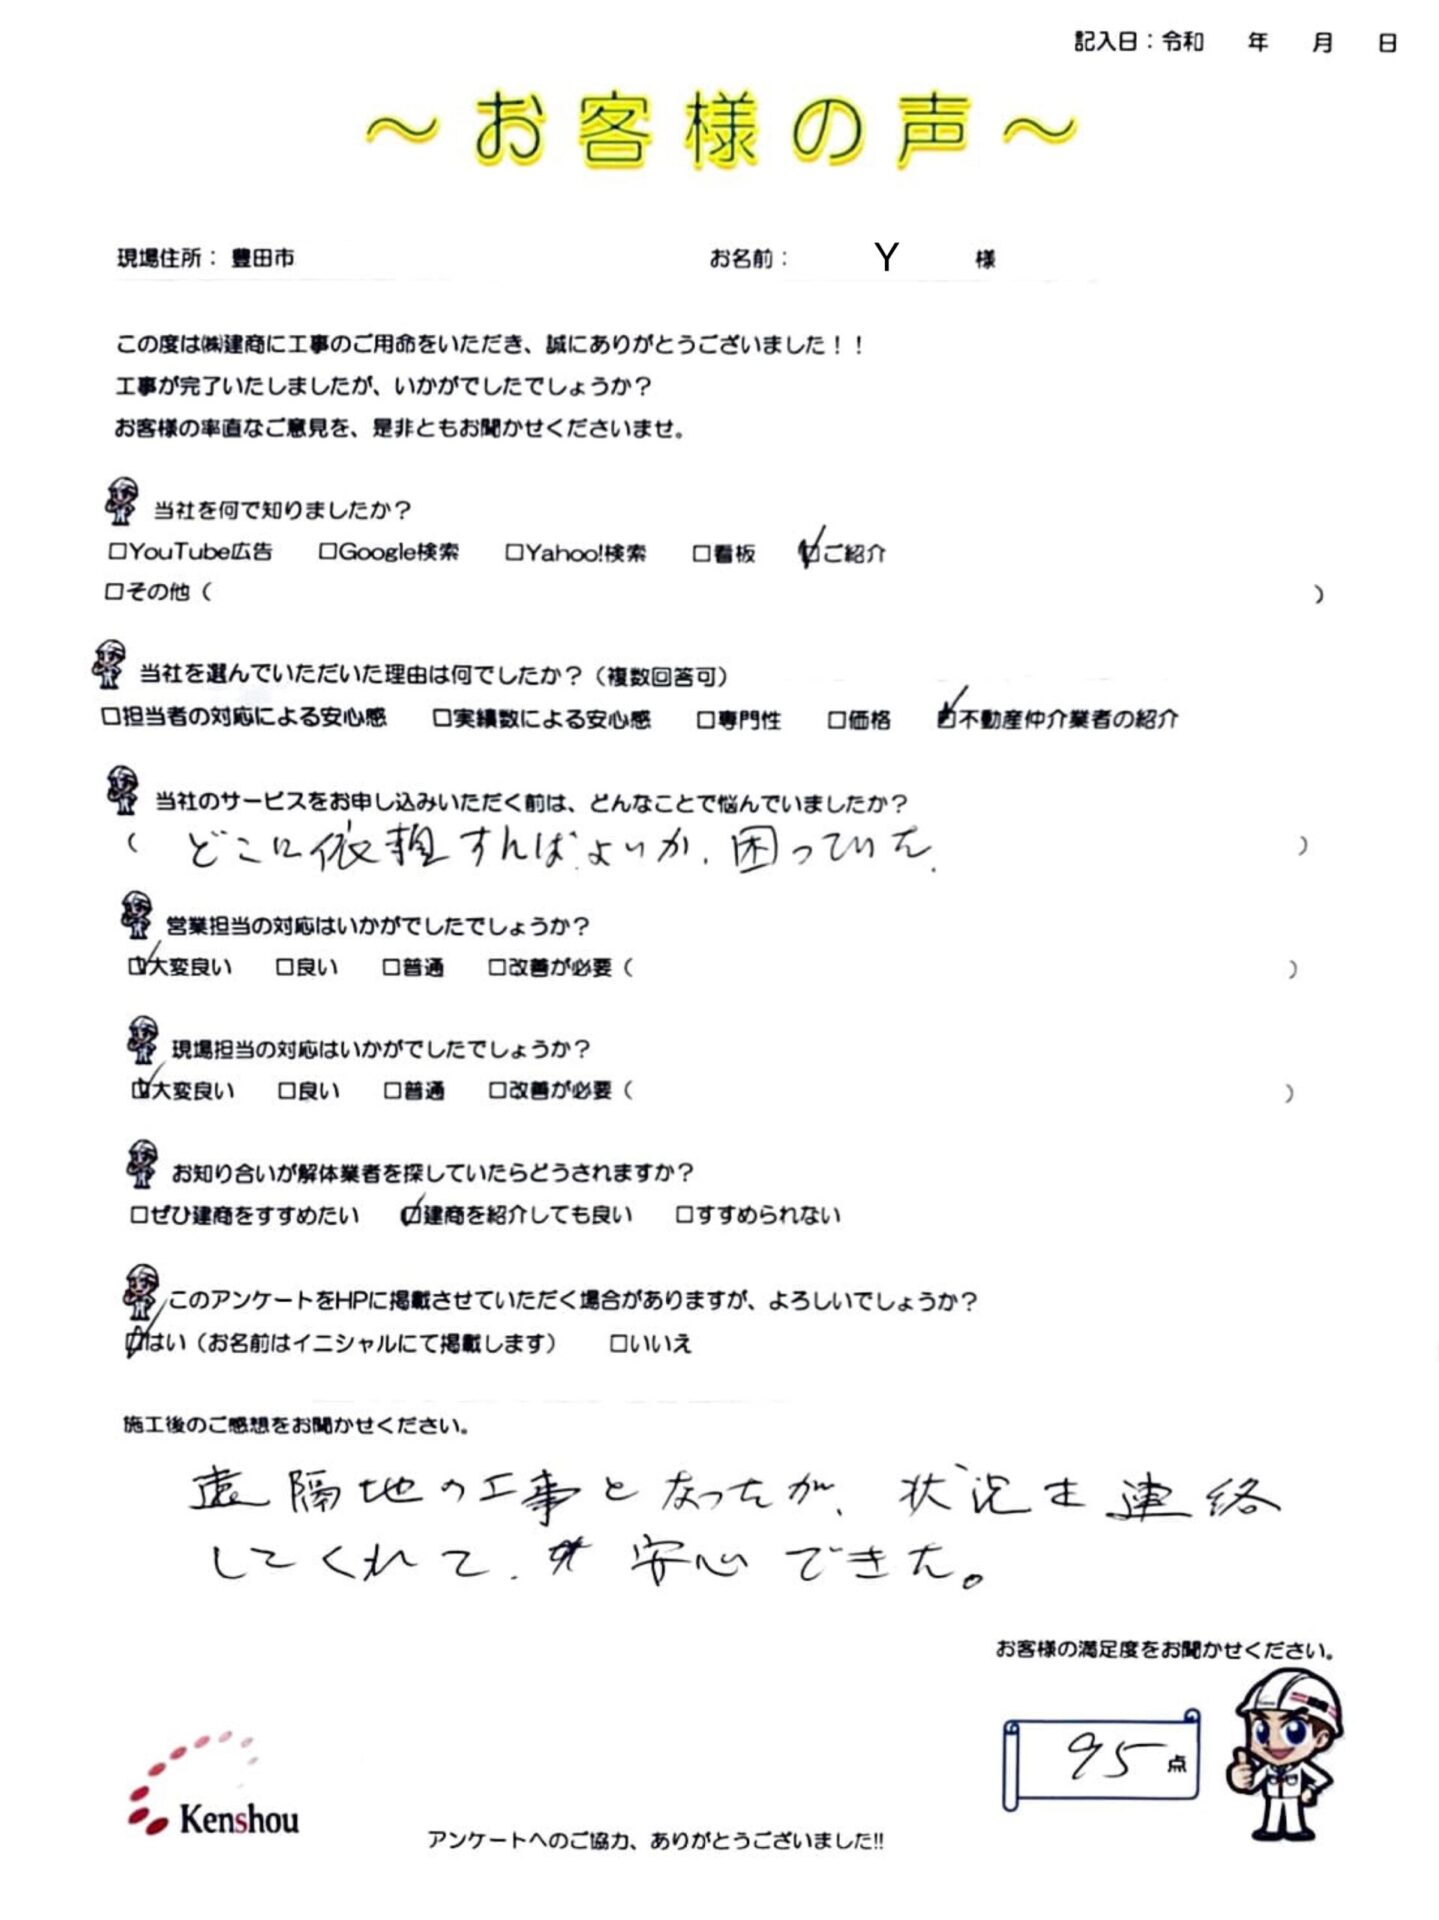 記入日：令和　年　月　日
～お客様の声～
現場住所： 豊田市　お名前：　Y　様
この度は㈱建商に工事のご用命をいただき、誠にありがとうございました！！
工事が完了いたしましたが、いかがでしたでしょうか？
お客様の率直なご意見を、是非ともお聞かせくださいませ。
当社を何で知りましたか？
□YouTube広告　□Google検索　□Yahoo!検索　□看板　☑ご紹介
□その他（　）
当社を選んでいただいた理由は何でしたか？（複数回答可）
□担当者の対応による安心感　□実績数による安心感　□専門性　□価格　☑不動産仲介業者の紹介
当社のサービスをお申し込みいただく前は、どんなことで悩んでいましたか？
（ どこに依頼すればよいか、困っていた。 ）
営業担当の対応はいかがでしたでしょうか？
☑大変良い　□良い　□普通　□改善が必要（　）
現場担当の対応はいかがでしたでしょうか？
☑大変良い　□良い　□普通　□改善が必要（　）
お知り合いが解体業者を探していたらどうされますか？
□ぜひ建商をすすめたい　☑建商を紹介しても良い　□すすめられない
このアンケートをHPに掲載させていただく場合がありますが、よろしいでしょうか？
☑はい（お名前はイニシャルにて掲載します）　□いいえ
施工後のご感想をお聞かせください。
遠隔地の工事となったが、状況を連絡
してくれて、安心できた。
お客様の満足度をお聞かせください。
95点
Kenshou
アンケートへのご協力、ありがとうございました!!